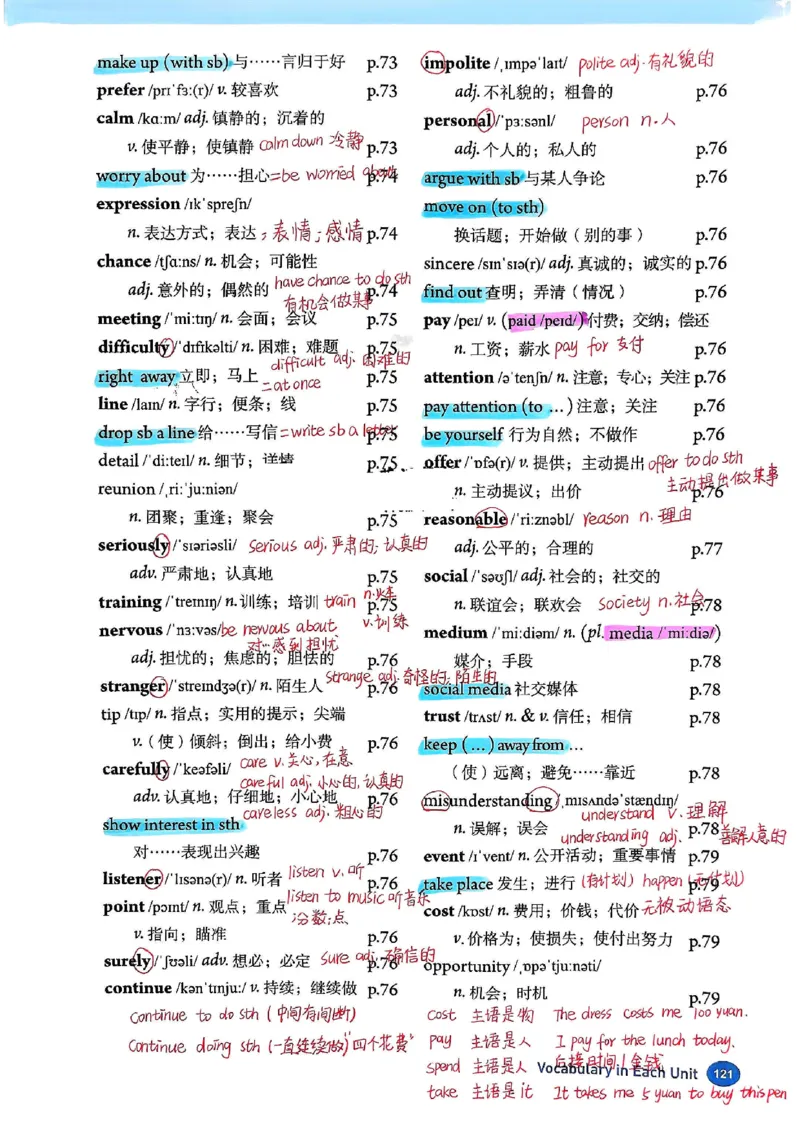 make up (with sb) 与……言归于好 p.73
prefer /prɪˈfɜː(r)/ v. 较喜欢 p.73
calm /kɑːm/ adj. 镇静的；沉着的
v. 使平静；使镇静 calm down 冷静 p.73
worry about 为……担心 =be worried about p.74
expression /ɪkˈspreʃn/
n. 表达方式；表达；表情；感情 p.74
chance /tʃɑːns/ n. 机会；可能性
adj. 意外的；偶然的 have chance to do sth p.74
有机会做某事
meeting /ˈmiːtɪŋ/ n. 会面；会议 p.75
difficulty /ˈdɪfɪkəlti/ n. 困难；难题 p.75
difficult adj. 困难的
right away 立即；马上 =at once p.75
line /laɪn/ n. 字行；便条；线 p.75
drop sb a line 给……写信 =write sb a letter p.75
detail /ˈdiːteɪl/ n. 细节；详情 p.75
reunion /ˌriːˈjuːniən/
n. 团聚；重逢；聚会 p.75
seriously /ˈsɪəriəsli/ serious adj. 严肃的；认真的
adv. 严肃地；认真地 p.75
training /ˈtreɪnɪŋ/ n. 训练；培训 train n.火车 p.75
v.训练
nervous /ˈnɜːvəs/ be nervous about
对…感到担忧
adj. 担忧的；焦虑的；胆怯的 p.76
stranger /ˈstreɪndʒə(r)/ n. 陌生人 strange adj.奇怪的；陌生的 p.76
tip /tɪp/ n. 指点；实用的提示；尖端
v.（使）倾斜；倒出；给小费 p.76
carefully /ˈkeəfəli/ care v.关心，在意
careful adj. 小心的，认真的
adv. 认真地；仔细地；小心地 p.76
careless adj. 粗心的
show interest in sth
对……表现出兴趣 p.76
listener /ˈlɪsənə(r)/ n. 听者 listen v.听 p.76
listen to music 听音乐
point /pɔɪnt/ n. 观点；重点 分数；点
v. 指向；瞄准 p.76
surely /ˈʃʊəli/ adv. 想必；必定 sure adj. 确信的 p.76
continue /kənˈtɪnjuː/ v. 持续；继续做 p.76
continue to do sth (中间有间断)
continue doing sth (一直连续做)
impolite /ˌɪmpəˈlaɪt/ polite adj.有礼貌的
adj. 不礼貌的；粗鲁的 p.76
personal /ˈpɜːsənl/ person n.人
adj. 个人的；私人的 p.76
argue with sb 与某人争论 p.76
move on (to sth)
换话题；开始做（别的事） p.76
sincere /sɪnˈsɪə(r)/ adj. 真诚的；诚实的 p.76
find out 查明；弄清（情况） p.76
pay /peɪ/ v. (paid /peɪd/) 付费；交纳；偿还
n. 工资；薪水 pay for 支付 p.76
attention /əˈtenʃn/ n. 注意；专心；关注 p.76
pay attention (to …) 注意；关注 p.76
be yourself 行为自然；不做作 p.76
offer /ˈɒfə(r)/ v. 提供；主动提出 offer to do sth
主动提出做某事
n. 主动提议；出价 p.76
reasonable /ˈriːznəbl/ reason n. 理由
adj. 公平的；合理的 p.77
social /ˈsəʊʃl/ adj. 社会的；社交的
n. 联谊会；联欢会 society n.社会 p.78
medium /ˈmiːdiəm/ n. (pl. media /ˈmiːdiə/)
媒介；手段 p.78
social media 社交媒体 p.78
trust /trʌst/ n. & v. 信任；相信 p.78
keep (…) away from …
（使）远离；避免……靠近 p.78
misunderstanding /ˌmɪsʌndəˈstændɪŋ/
understand v.理解
n. 误解；误会 p.78
understanding adj. 善解人意的
event /ɪˈvent/ n. 公开活动；重要事情 p.79
take place 发生；进行 (有计划) happen (无计划) p.79
cost /kɒst/ n. 费用；价钱；代价 无被动语态
v. 价格为；使损失；使付出努力 p.79
opportunity /ˌɒpəˈtjuːnəti/
n. 机会；时机 p.79
"四个花费"
cost 主语是物 The dress costs me 100 yuan.
pay 主语是人 I pay for the lunch today.
spend 主语是人 后接时间/金钱
take 主语是it It takes me 5 yuan to buy this pen
Vocabulary in Each Unit 121